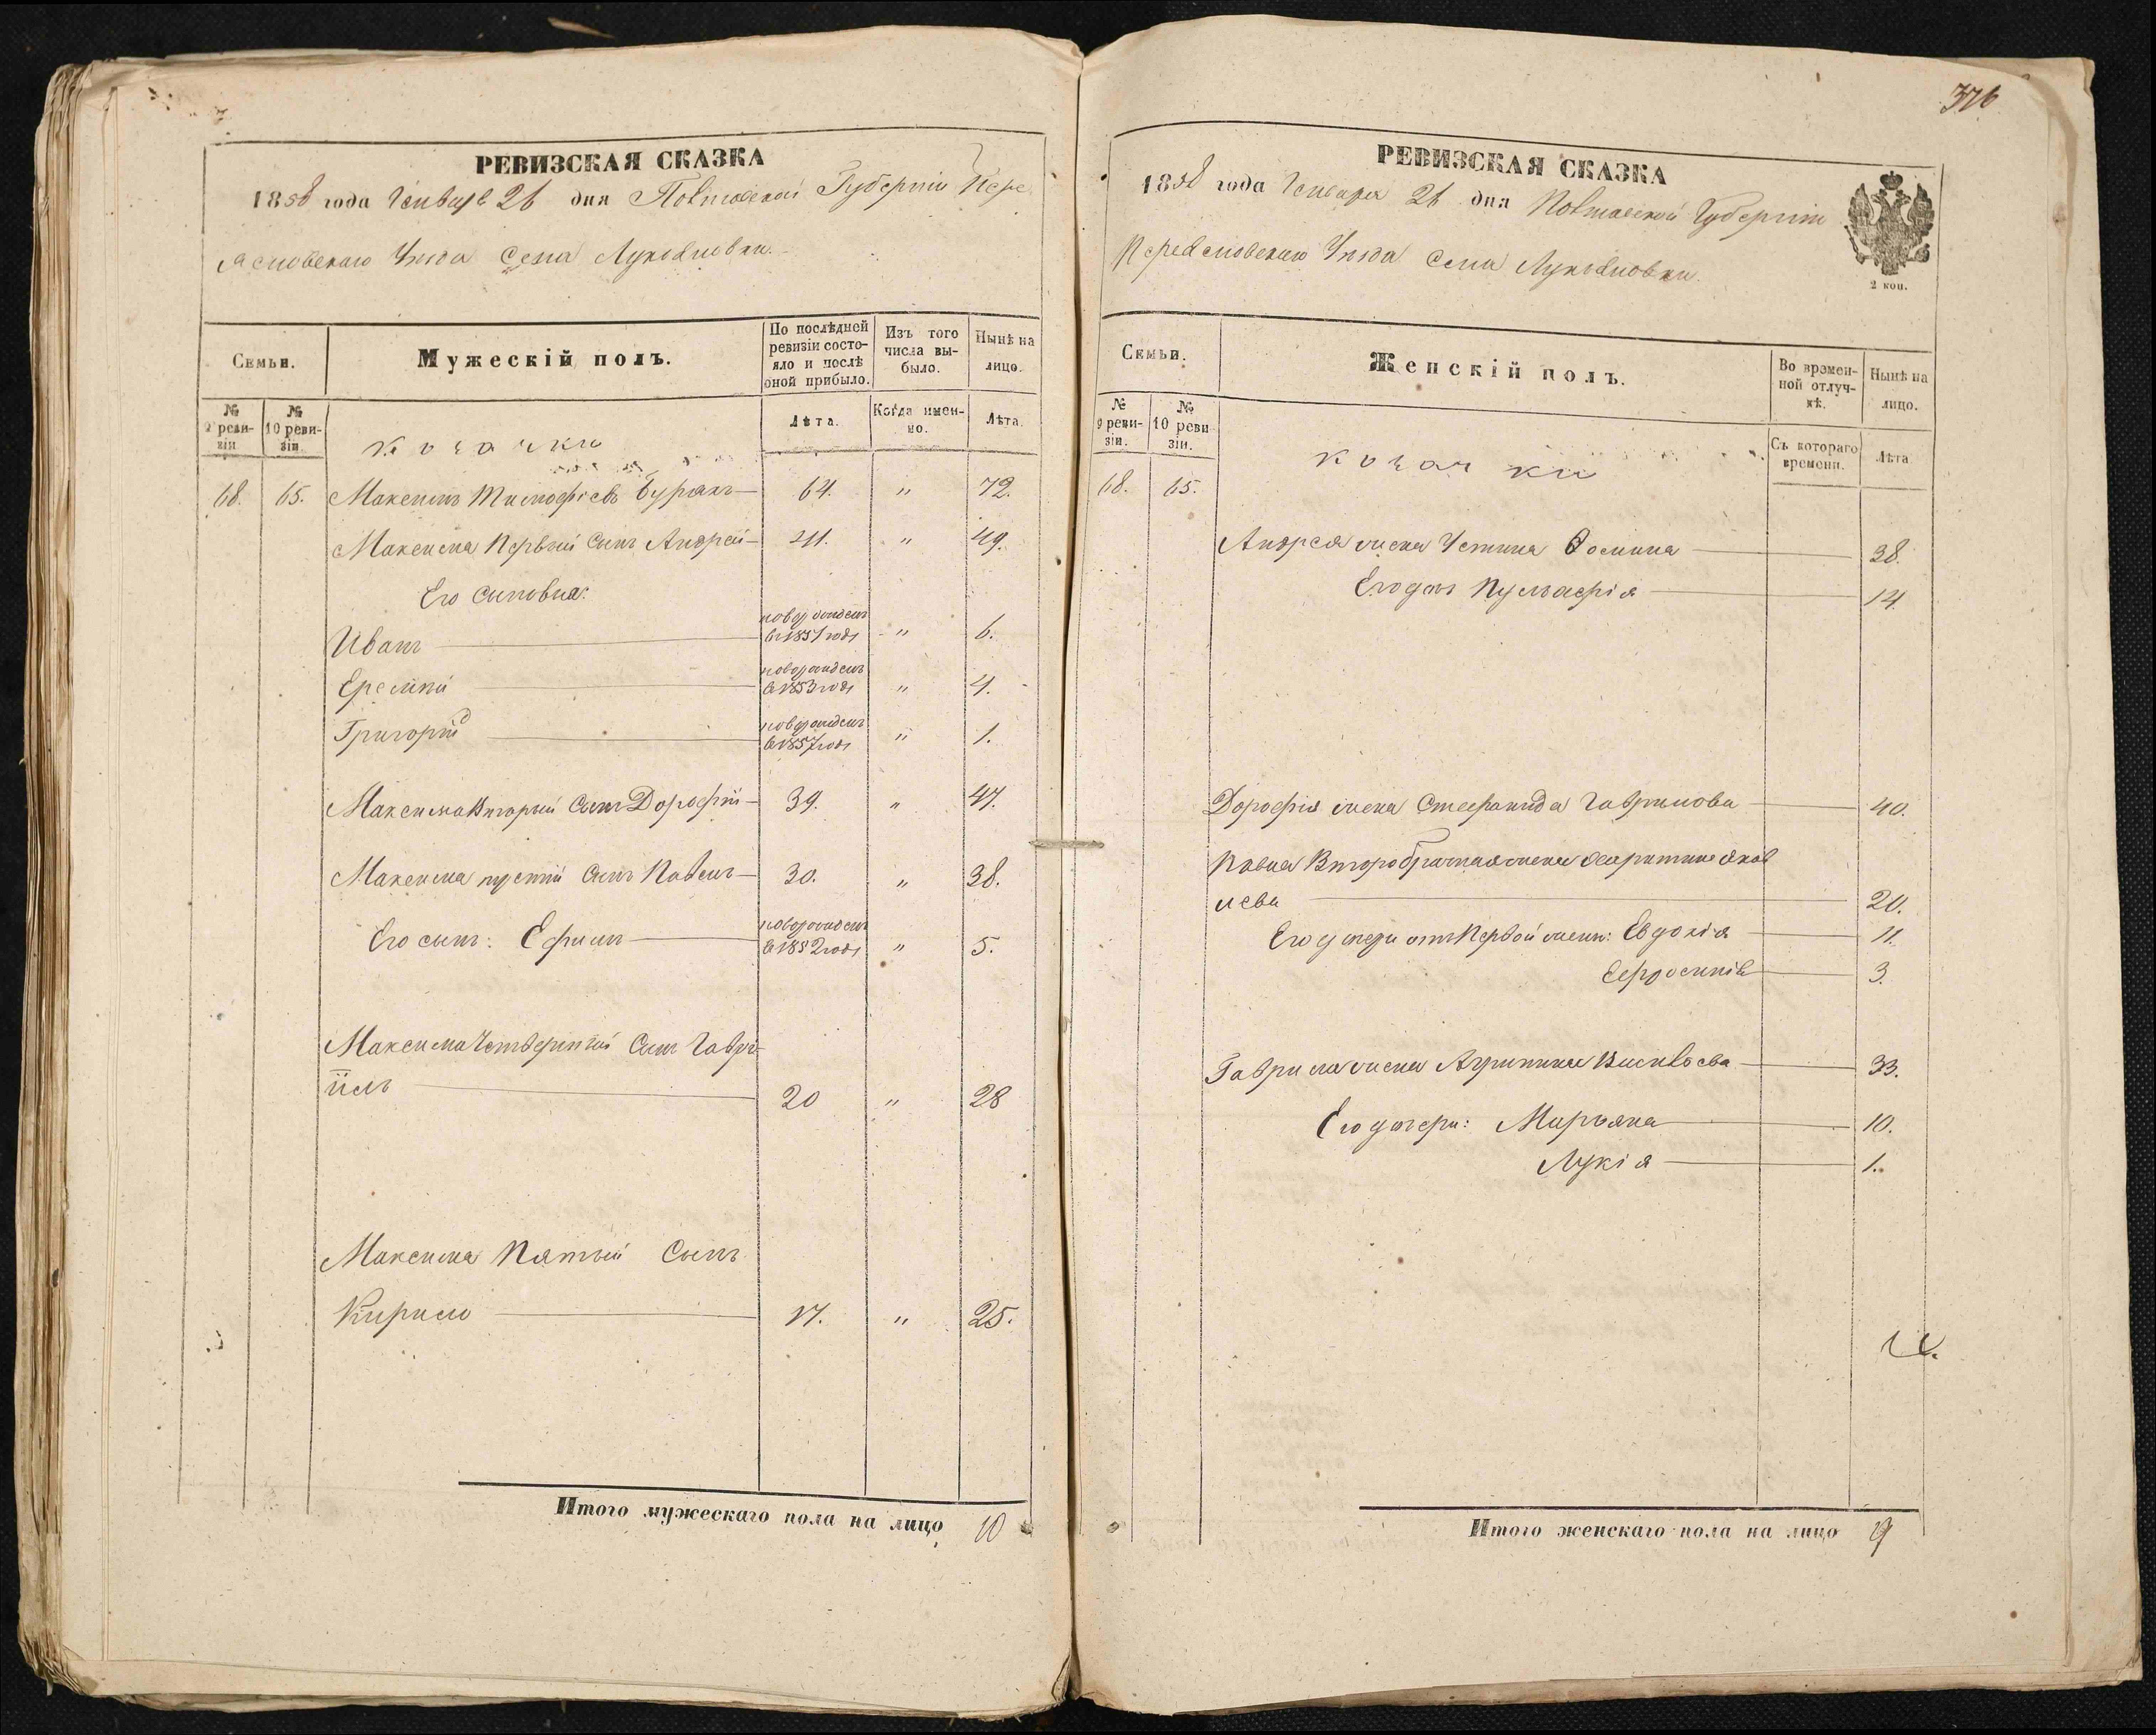 376
РЕВИЗСКАЯ СКАЗКА
1858 года Генваря 26 дня Полтавской Губерніи Пере
яславскаго Уезда Села Лукьяновки.
Семьи.
Мужескій полъ.
По послѣдней ревизіи состо-
яло и послѣ
оной прибыло.
Изъ того
числа вы-
было.
Нынѣ на
лицо.
№
9 реви-
зіи
№
10 реви-
зіи
Лѣта.
Когда имен-
но.
Лѣта.
козачки
68. 65. Максимъ Тимофіевъ Бурякъ 64. " 72.
Максима Первый Сынъ Андрей 41. " 49.
Его сыновья:
Иванъ новорожденъ в 1851 годѣ " 6.
Еремій новорожденъ в 1853 годѣ " 4.
Григорій новорожденъ в 1857 годѣ " 1.
Максима Вторый Сынъ Дорофій 39. " 47.
Максима третій Сынъ Павелъ 30. " 38.
Его сынъ: Ефимъ новорожденъ в 1852 годѣ " 5.
Максима Четвертый Сынъ Гавρі-
илъ 20 " 28
Максима Пятый Сынъ
Кирило 17. " 25.
Итого мужескаго пола на лицо 10
РЕВИЗСКАЯ СКАЗКА
1858 года Генваря 26 дня Полтавской Губерніи
Переяславскаго Уезда Села Лукьяновки.
2 коп.
Семьи.
Женскій полъ.
Во времен-
ной отлуч-
кѣ.
Нынѣ на
лицо.
№
9 реви-
зіи.
№
10 реви
зіи.
Съ котораго
времени.
Лѣта
козачки
68. 65.
Андрея жена Устина Фомина 38.
Его дочь Пульхерія 14
Дорофія жена Стефанида Гаврилова 40.
Павла Второбрачная жена Харитина Яков
лева 20.
Его дочери отъ Первой жены: Евдокія 11.
Ефросинія 3.
Гаврила жена Агрипина Василіева 33.
Его дочери: Марьяна 10.
Лукія 1.
Итого женскаго пола на лицо 9